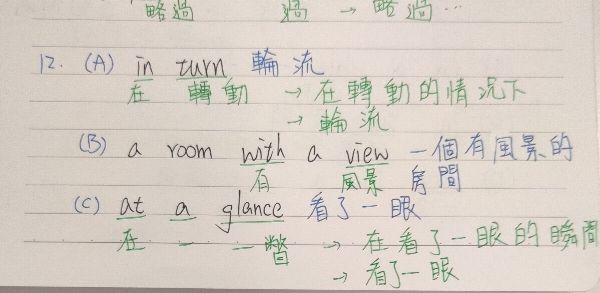 略過 過 → 略過…
12. (A) in turn 輪流
在 轉動 → 在轉動的情況下
→ 輪流
(B) a room with a view 一個有風景的
有 風景 房間
(C) at a glance 看了一眼
在 一 一瞥 → 在看了一眼的瞬間
→ 看了一眼